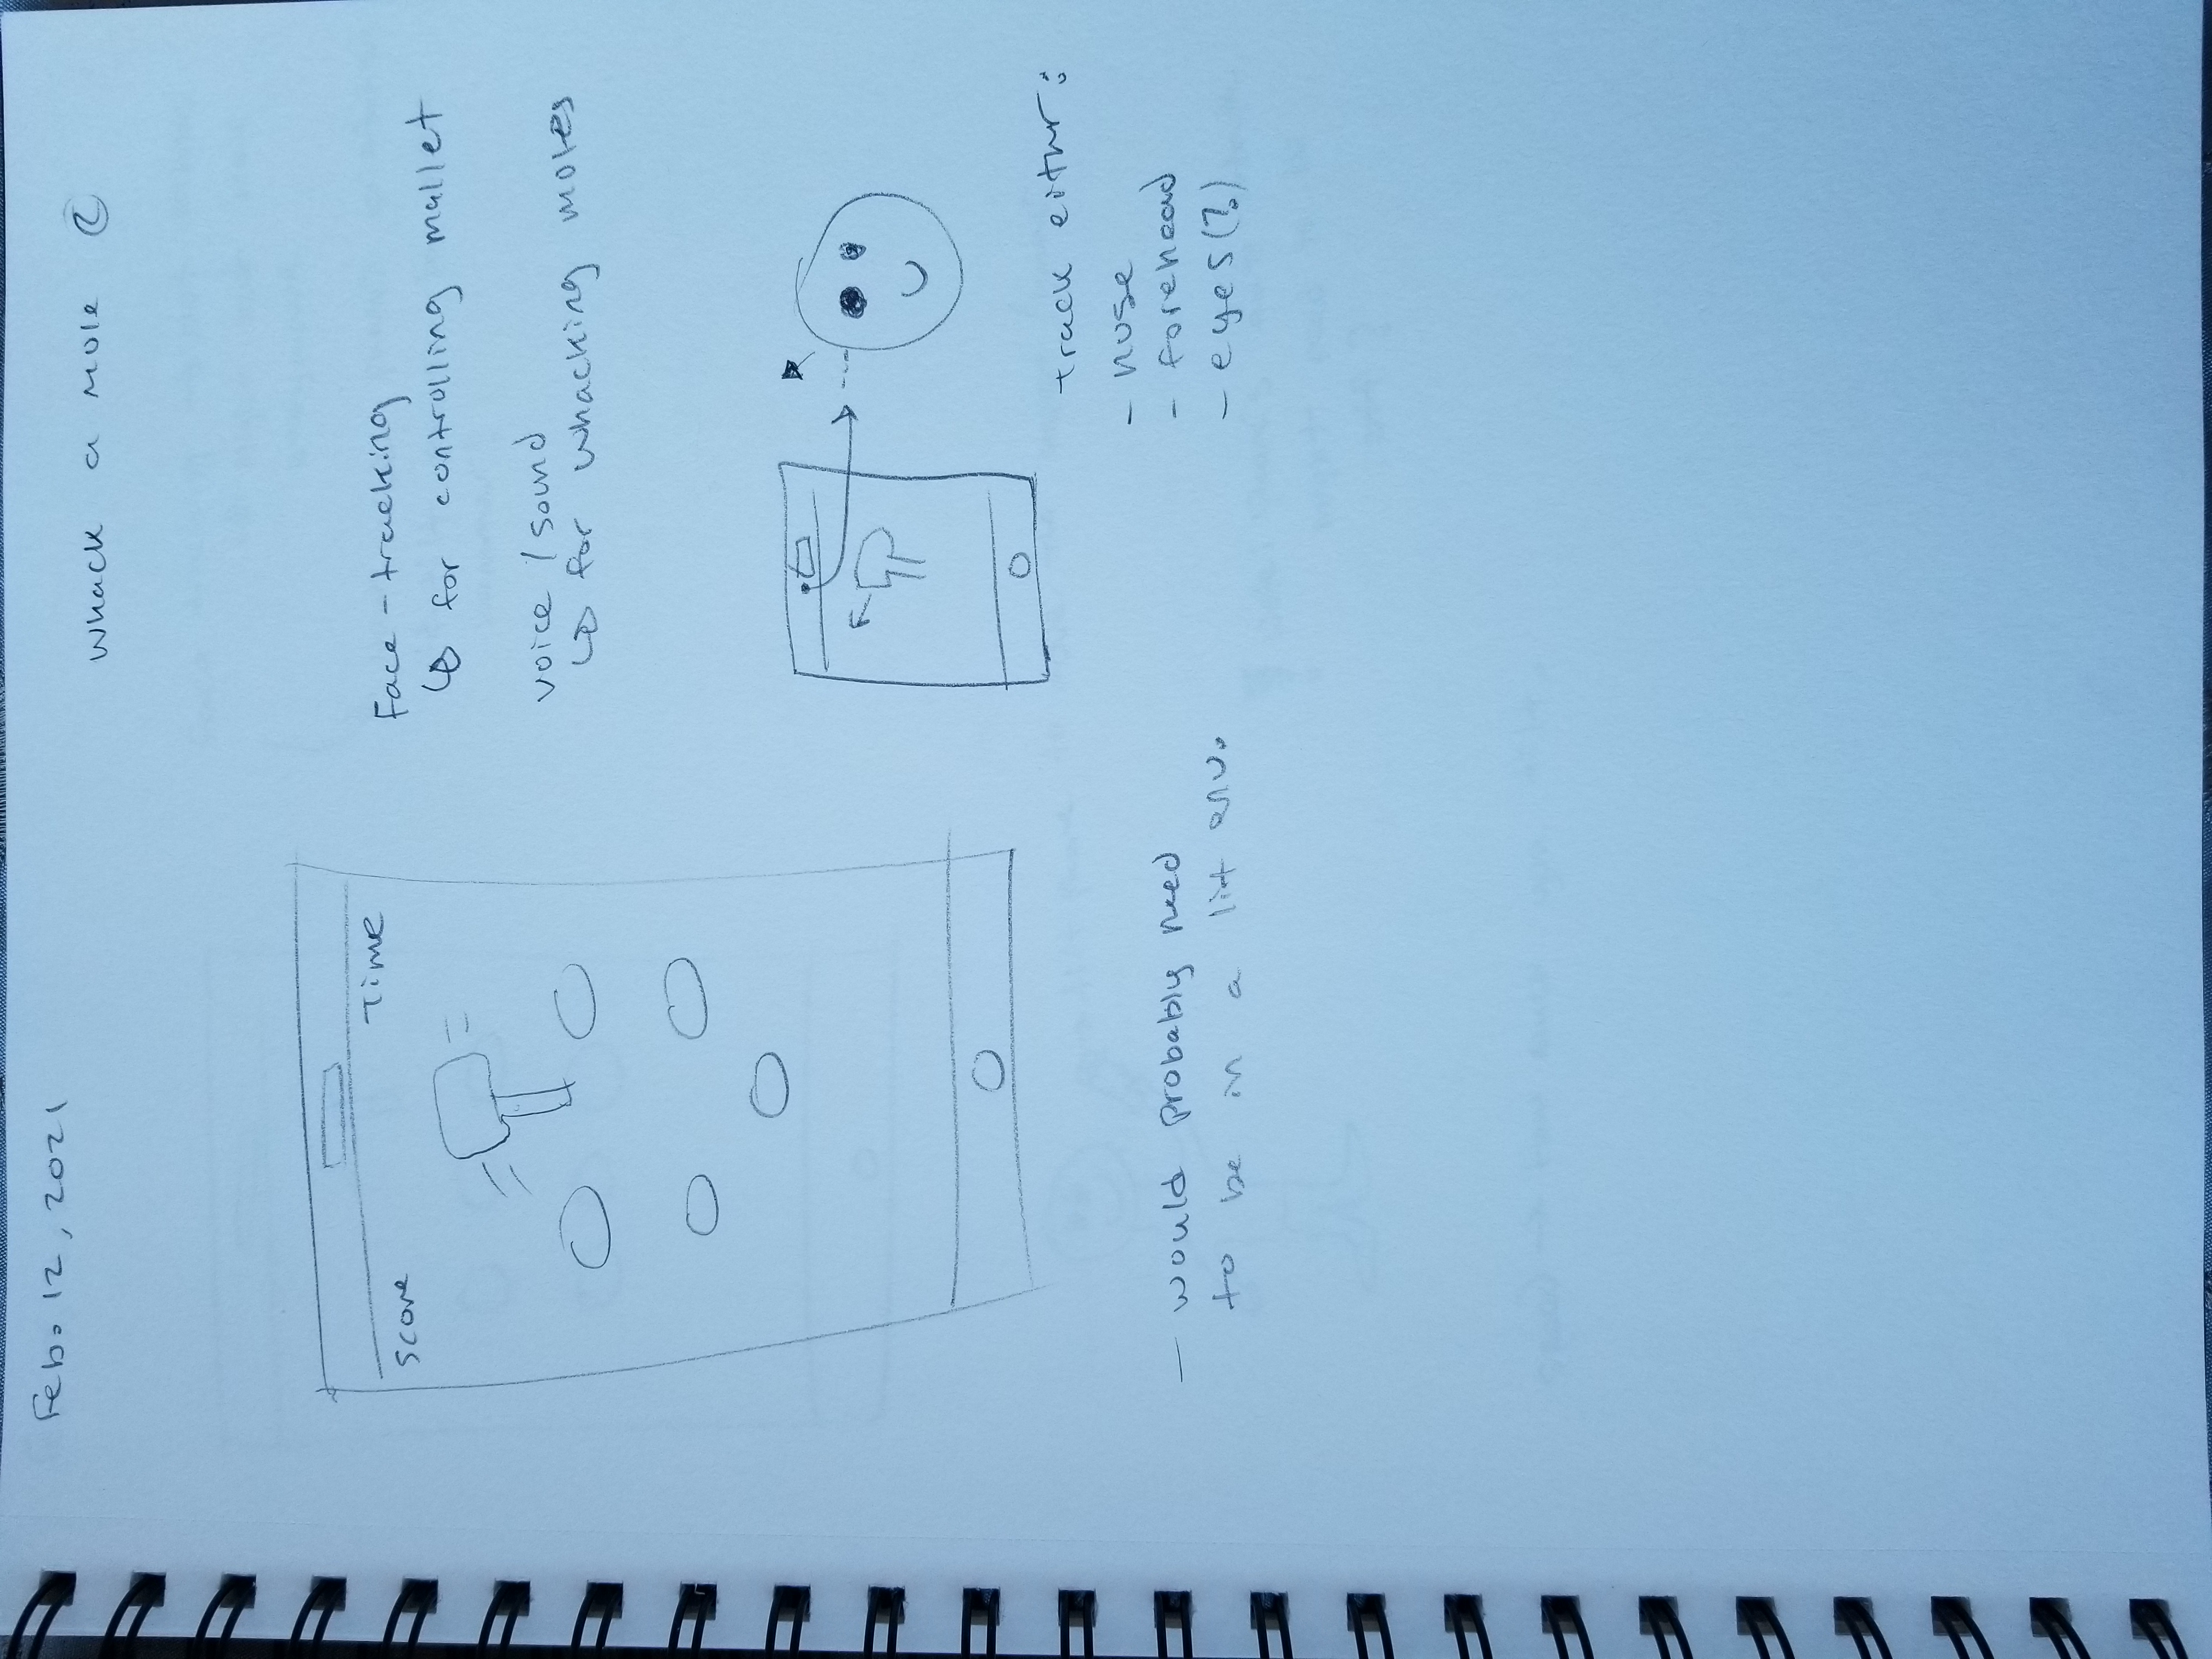 Feb. 12, 2021
Whack a Mole ②
Time
Score
Face-tracking
↳ for controlling mallet
voice / sound
↳ for whacking moles
track either:
- nose
- forehead
- eyes(?)
- would probably need
to be in a lit env.